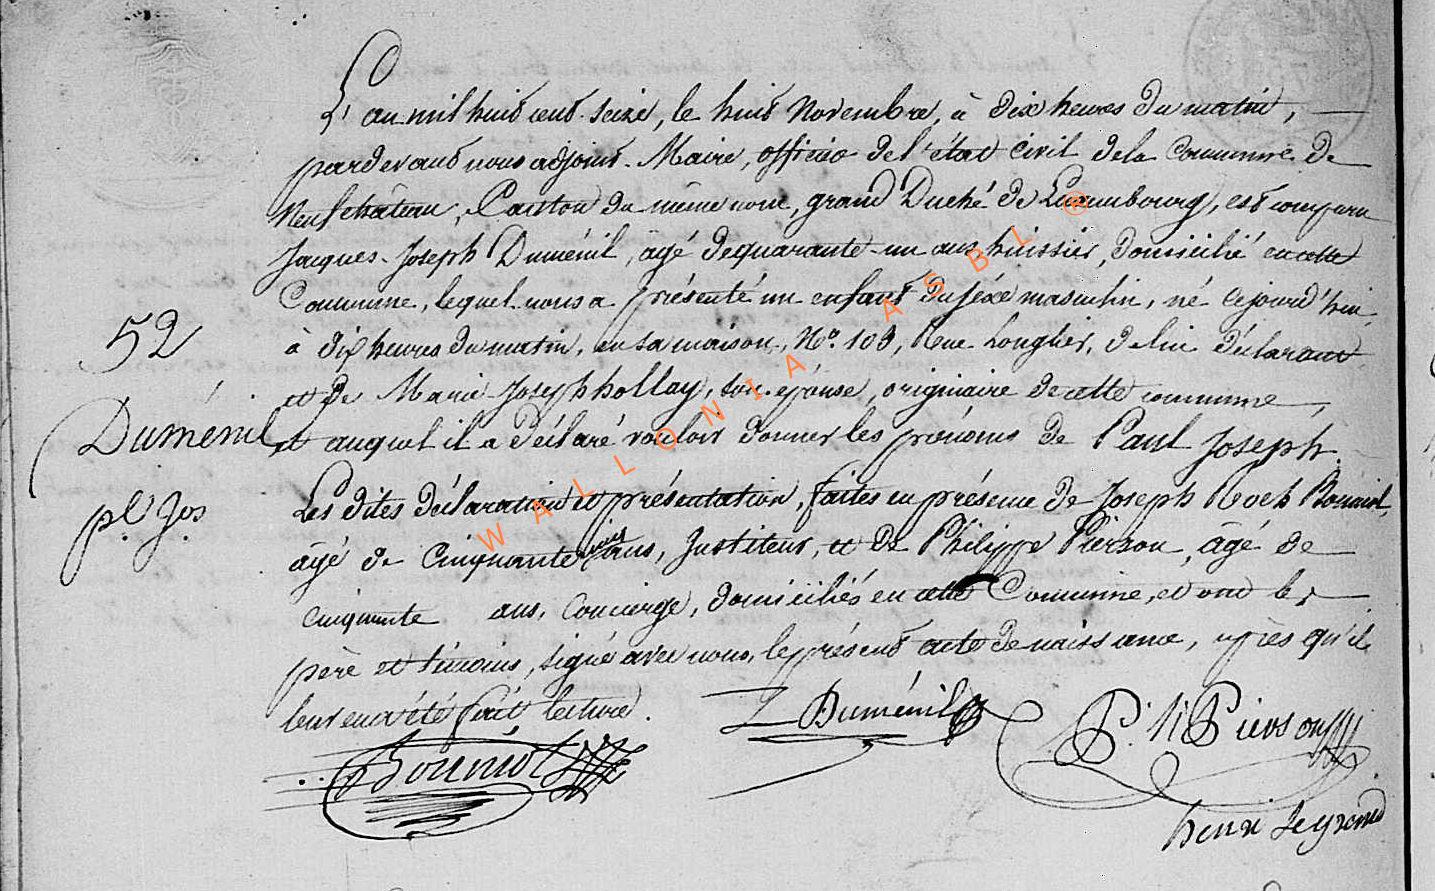 L'an mil huit cent seize, le huit Novembre, à dix heures du matin,
pardevant nous adjoint Maire, officier de l'état civil de la Commune de
Neufchâteau, Canton du même nom, grand Duché de Luxembourg, est comparu
Jacques Joseph Duménil, âgé de quarante un ans, huissier, domicilié en cette
Commune, lequel nous a présenté un enfant du séxe masculin, né cejourd'hui
à dix heures du matin, en sa maison, N°. 103, Rue Longlier, de lui déclarant
et de Marie Joseph hollay, son épouse, originaire de cette commune,
et auquel il a déclaré vouloir donner les prénoms de Paul Joseph.
Les dites déclaration et présentation, faites en présence de Joseph Roch
agé de Cinquante trois ans, Institeur, et de Philippe Pierson, âgé de
cinquante ans, Concierge, domiciliés en cette Commune, et ont les
père et témoins, signé avec nous, le présent acte de naissance, après qu'il
leur en a été fait lecture.
52
Duménil
pl. Jos
Duménil
P. H Pierson
henri Legrand
WALLONIA ASBL ®